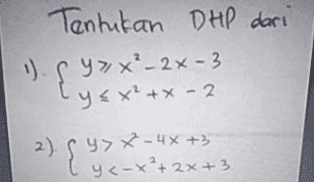 Tentukan DHP dari
1). { y ≥ x² - 2x - 3
y ≤ x² + x - 2
2) { y > x² - 4x + 3
y < -x² + 2x + 3